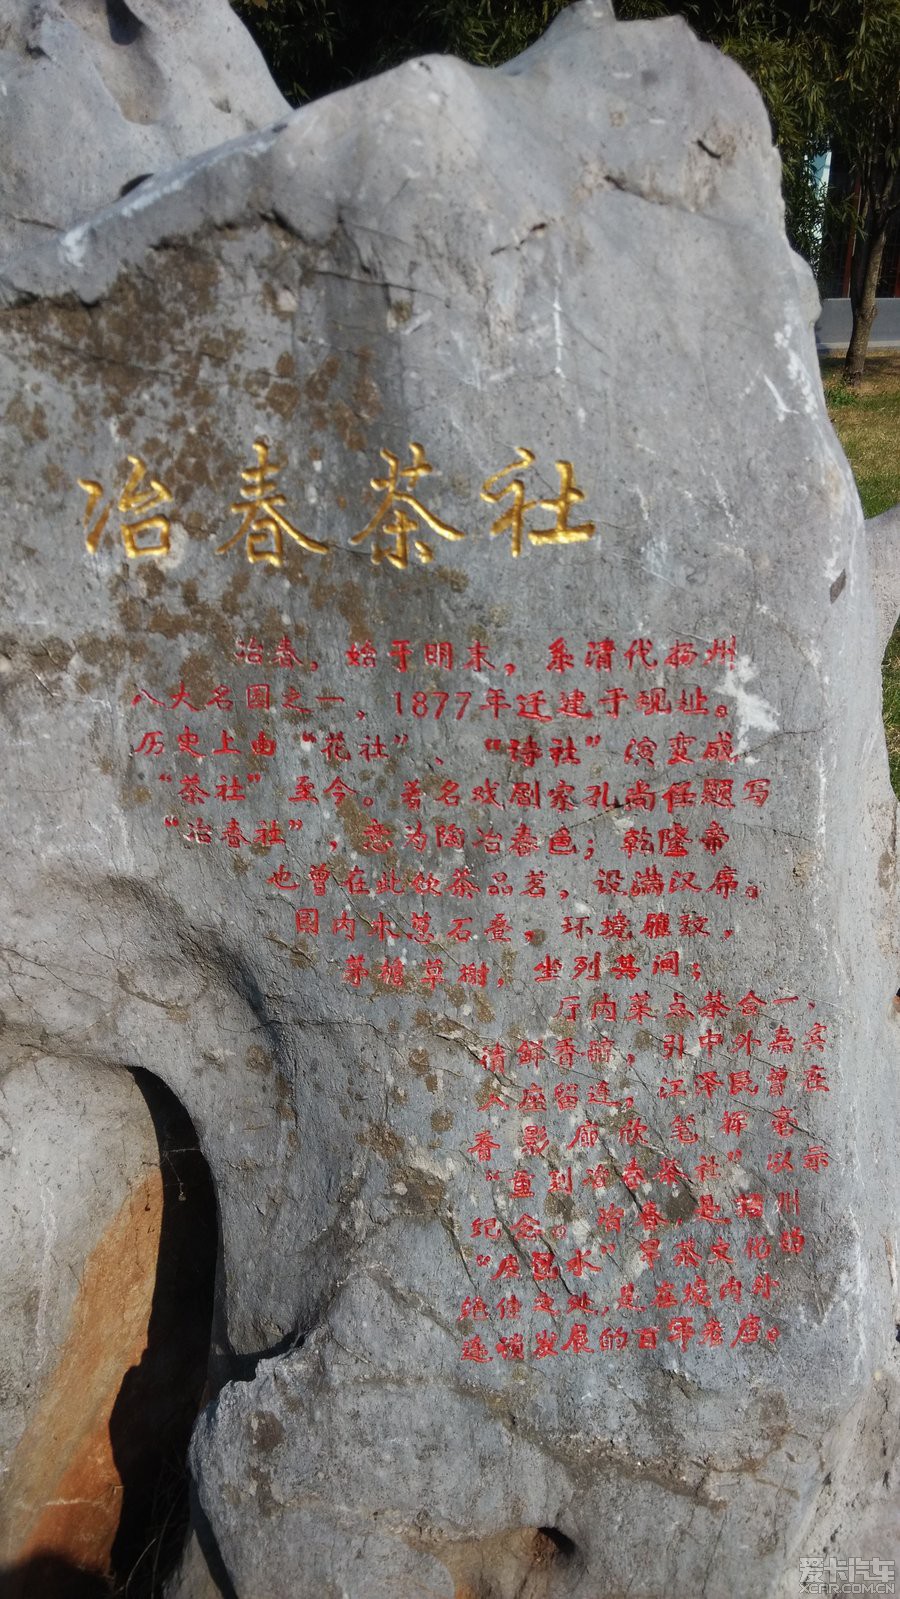 冶春茶社
冶春，始于明末，系清代扬州
八大名园之一，1877年迁建于现址。
历史上由“花社”、“诗社”演变成
“茶社”至今。著名戏剧家孔尚任题写
“冶春社”，意为陶冶春色；乾隆帝
也曾在此饮茶品茗，设满汉席。
园内水苑石叠，环境雅致，
茅檐草榭，坐列其间；
厅内菜点茶合一，
清鲜香醇，引中外嘉宾
入座留连，江泽民曾在
香影廊欣笔挥毫
“重到冶春茶社”以示
纪念。冶春，是扬州
“皮包水”早茶文化的
绝佳之处，是在境内外
连锁发展的百年老店。
爱卡汽车
XCAR.COM.CN